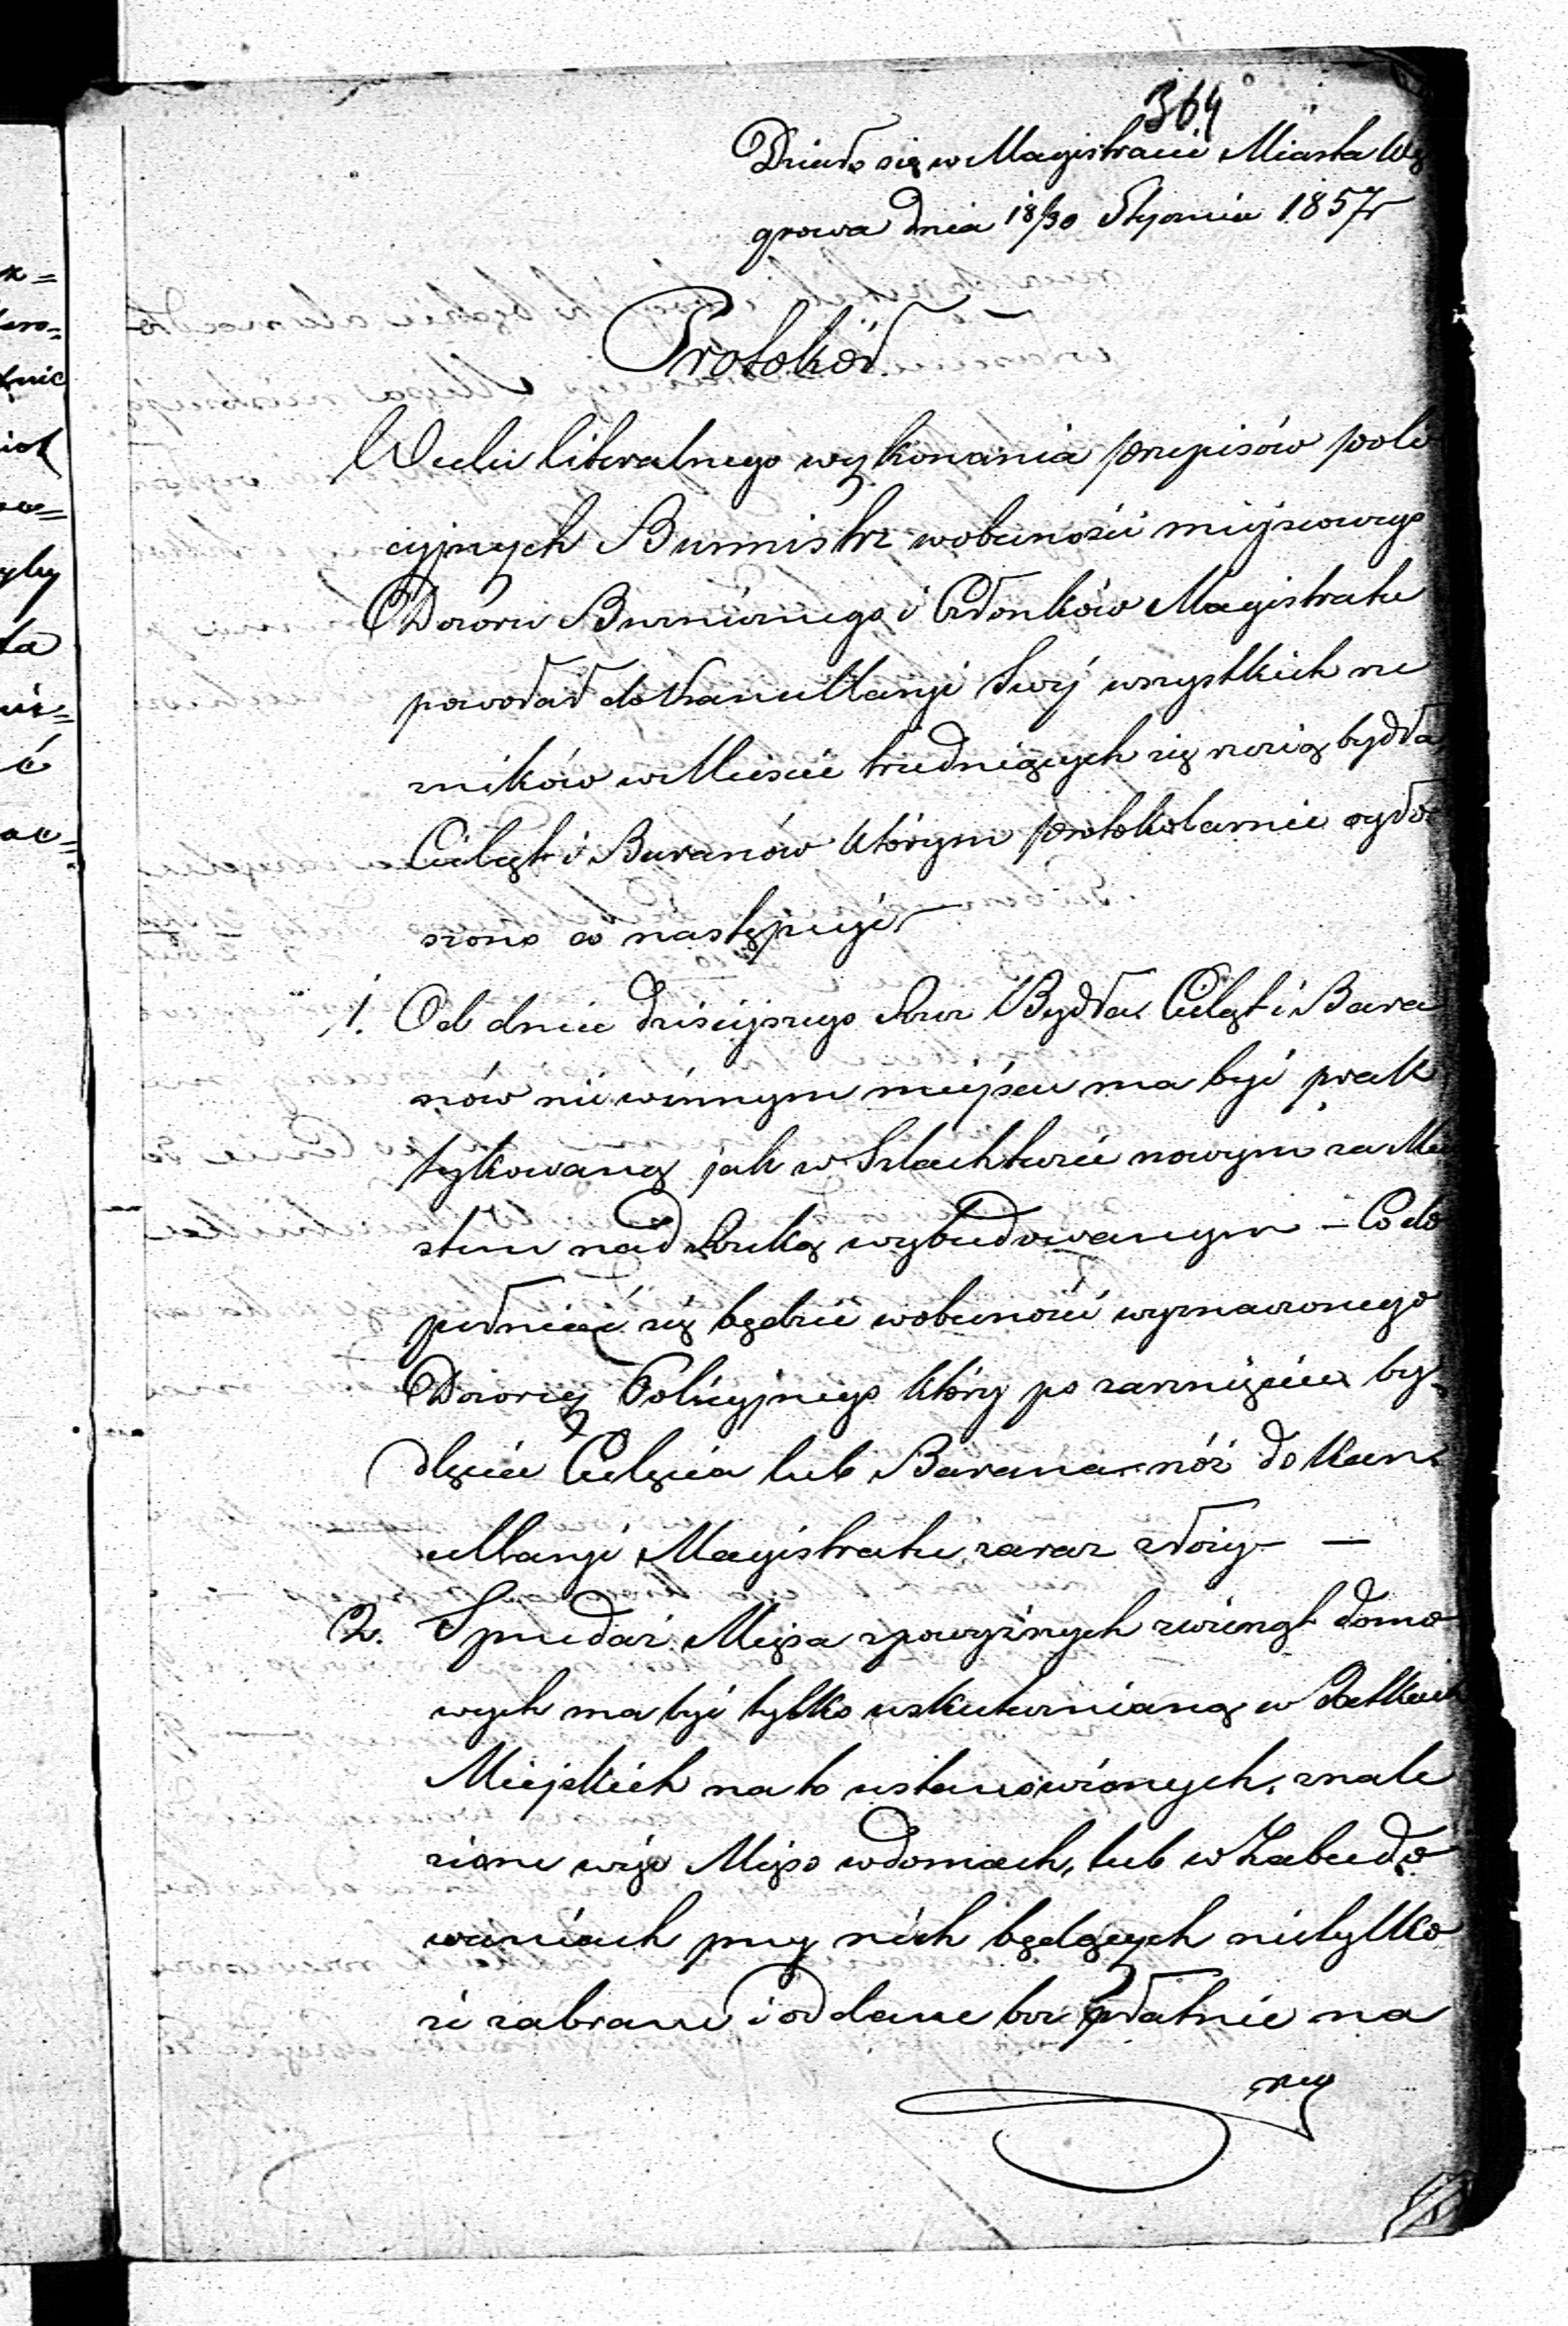 364
Działo się w Magistracie Miasta Wę
growa dnia 18/30 Stycznia 1857 r
Protokół
W celu literalnego wykonania przepisów poli
cyjnych Burmistrz w obecności miejscowego
Dozoru Bużniczego i Członków Magistratu
powołał do Kancellaryi Swej wszystkich rze
zników w Mieście trudniących się rzezią bydła
Cieląt i Baranów którym protokolarnie ogło
szono co następuje
1. Od dnia dzisiejszego Rzeź Bydła Cieląt i Bara
nów nie w innym miejscu ma być prak
tykowaną jak w Szlachtuzie nowym za Mia
stem nad Rzeką wybudowanym – Co do
pełniać się będzie w obecności wyznaczonego
Dozorcy Policyjnego który po zarznięciu by
dlęcia Cielęcia lub Barana nóż do Kan
cellaryi Magistratu zaraz złoży –
2. Sprzedaż Mięsa z powyższych zwierząt domo
wych ma być tylko uskuteczniana w Jatkach
Miejskich na to ustanowionych, znale
zione więc Mięso w domach, lub w Zabudo
waniach przy nich będących nietylko
że zabrane i oddane bez płatnie na